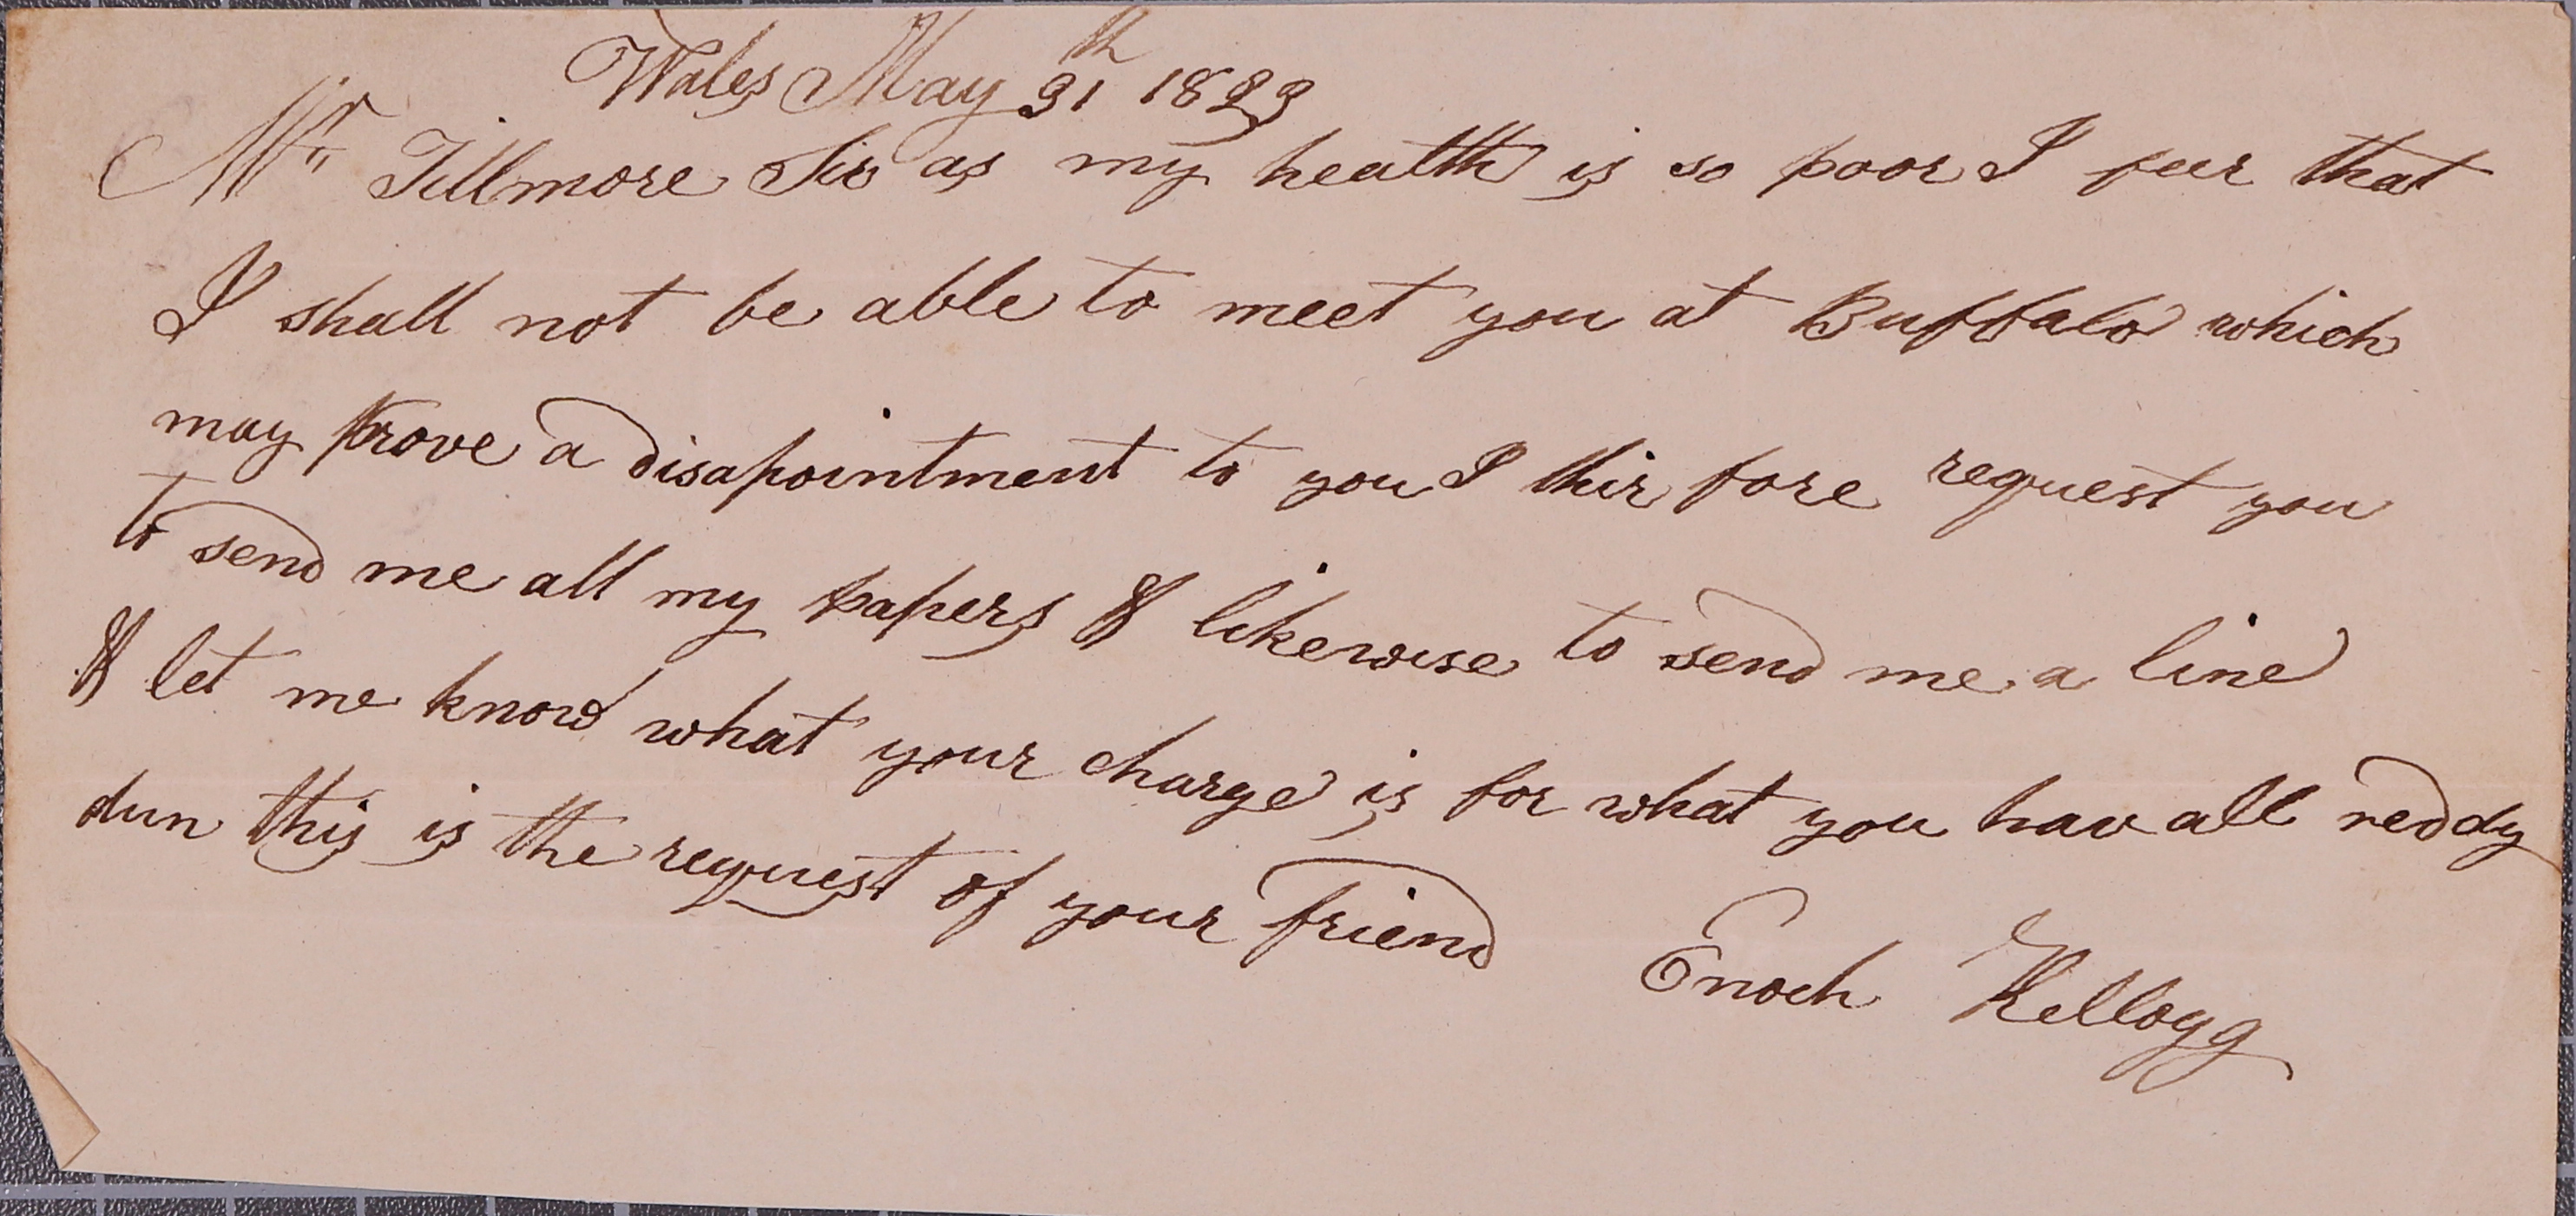 Wales May 31th 1829
Mr Fillmore Sir as my health is so poor I feer that
I shall not be able to meet you at Buffalo which
may prove a disapointment to you I thir fore request you
to send me all my papers & likewise to send me a line
& let me know what your charge is for what you hav all reddy
dun this is the request of your friend Enoch Kellogg